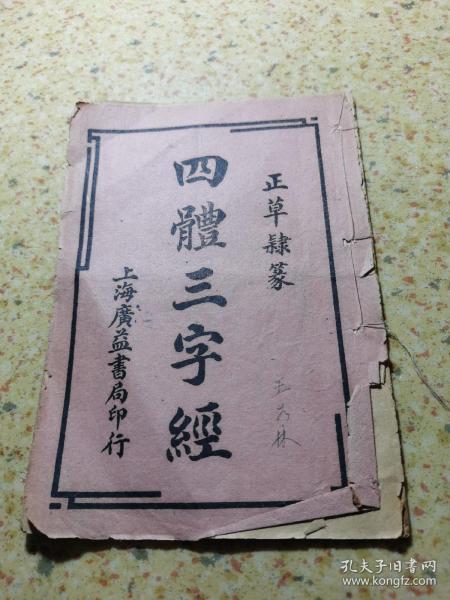 正草隸篆
四體三字經
上海廣益書局印行
孔夫子旧书网
www.kongfz.com